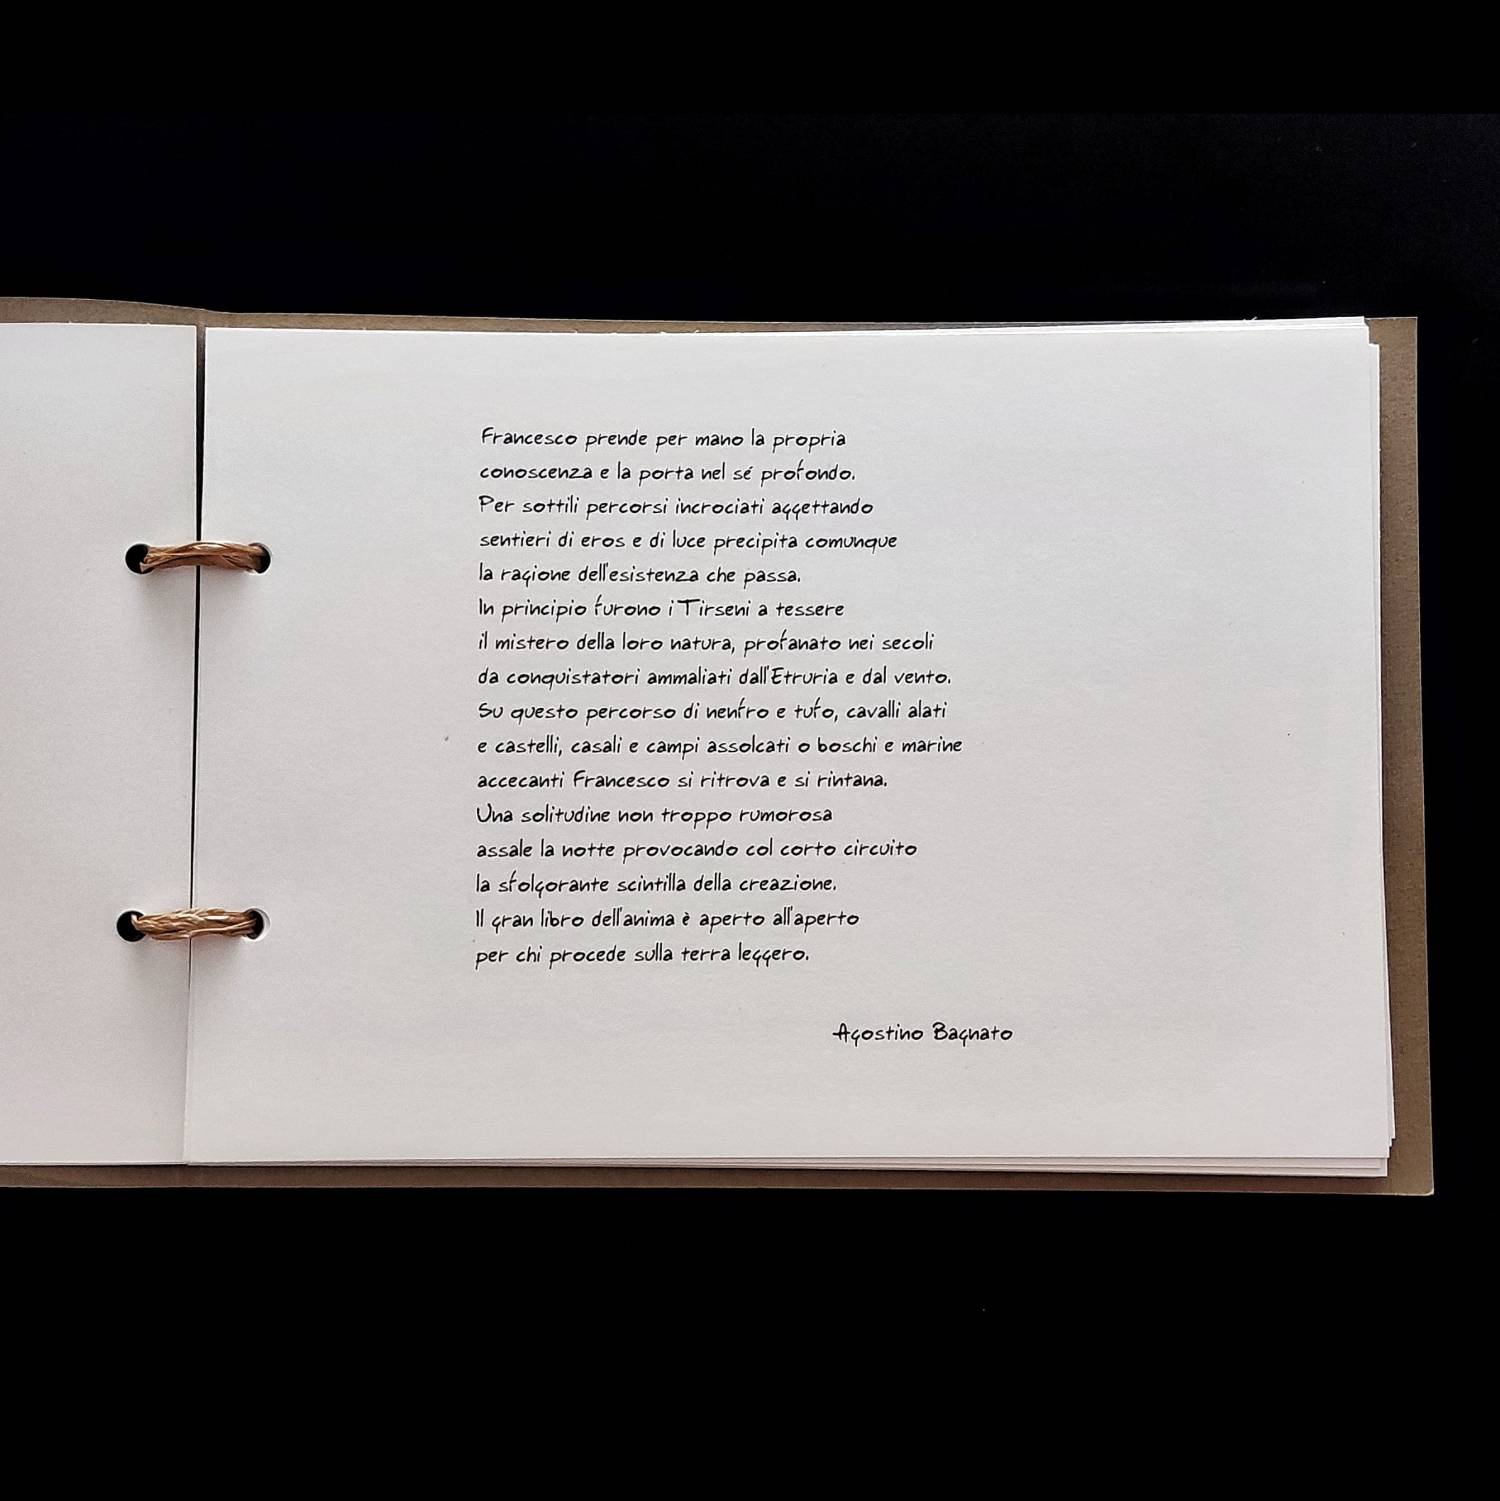 Francesco prende per mano la propria
conoscenza e la porta nel sé profondo.
Per sottili percorsi incrociati aggettando
sentieri di eros e di luce precipita comunque
la ragione dell'esistenza che passa.
In principio furono i Tirseni a tessere
il mistero della loro natura, profanato nei secoli
da conquistatori ammaliati dall'Etruria e dal vento.
Su questo percorso di nenfro e tufo, cavalli alati
e castelli, casali e campi assolcati o boschi e marine
accecanti Francesco si ritrova e si rintana.
Una solitudine non troppo rumorosa
assale la notte provocando col corto circuito
la sfolgorante scintilla della creazione.
Il gran libro dell'anima è aperto all'aperto
per chi procede sulla terra leggero.
Agostino Bagnato